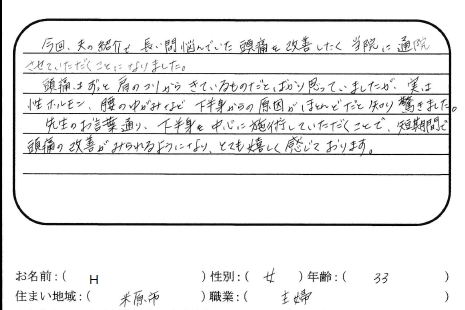 今回、夫の紹介で長い間悩んでいた頭痛を改善したく当院に通院
させていただくことになりました。
頭痛はずっと肩のコリからきているものだとばかり思っていましたが、実は
性ホルモン、腰のゆがみなど下半身からの原因がほとんどだと知り驚きました。
先生のお言葉通り、下半身を中心に施術していただくことで、短期間で
頭痛の改善がみられるようになり、とても嬉しく感じております。
お名前：( H ) 性別：( 女 ) 年齢：( 33 )
住まい地域：( 米原市 ) 職業：( 主婦 )